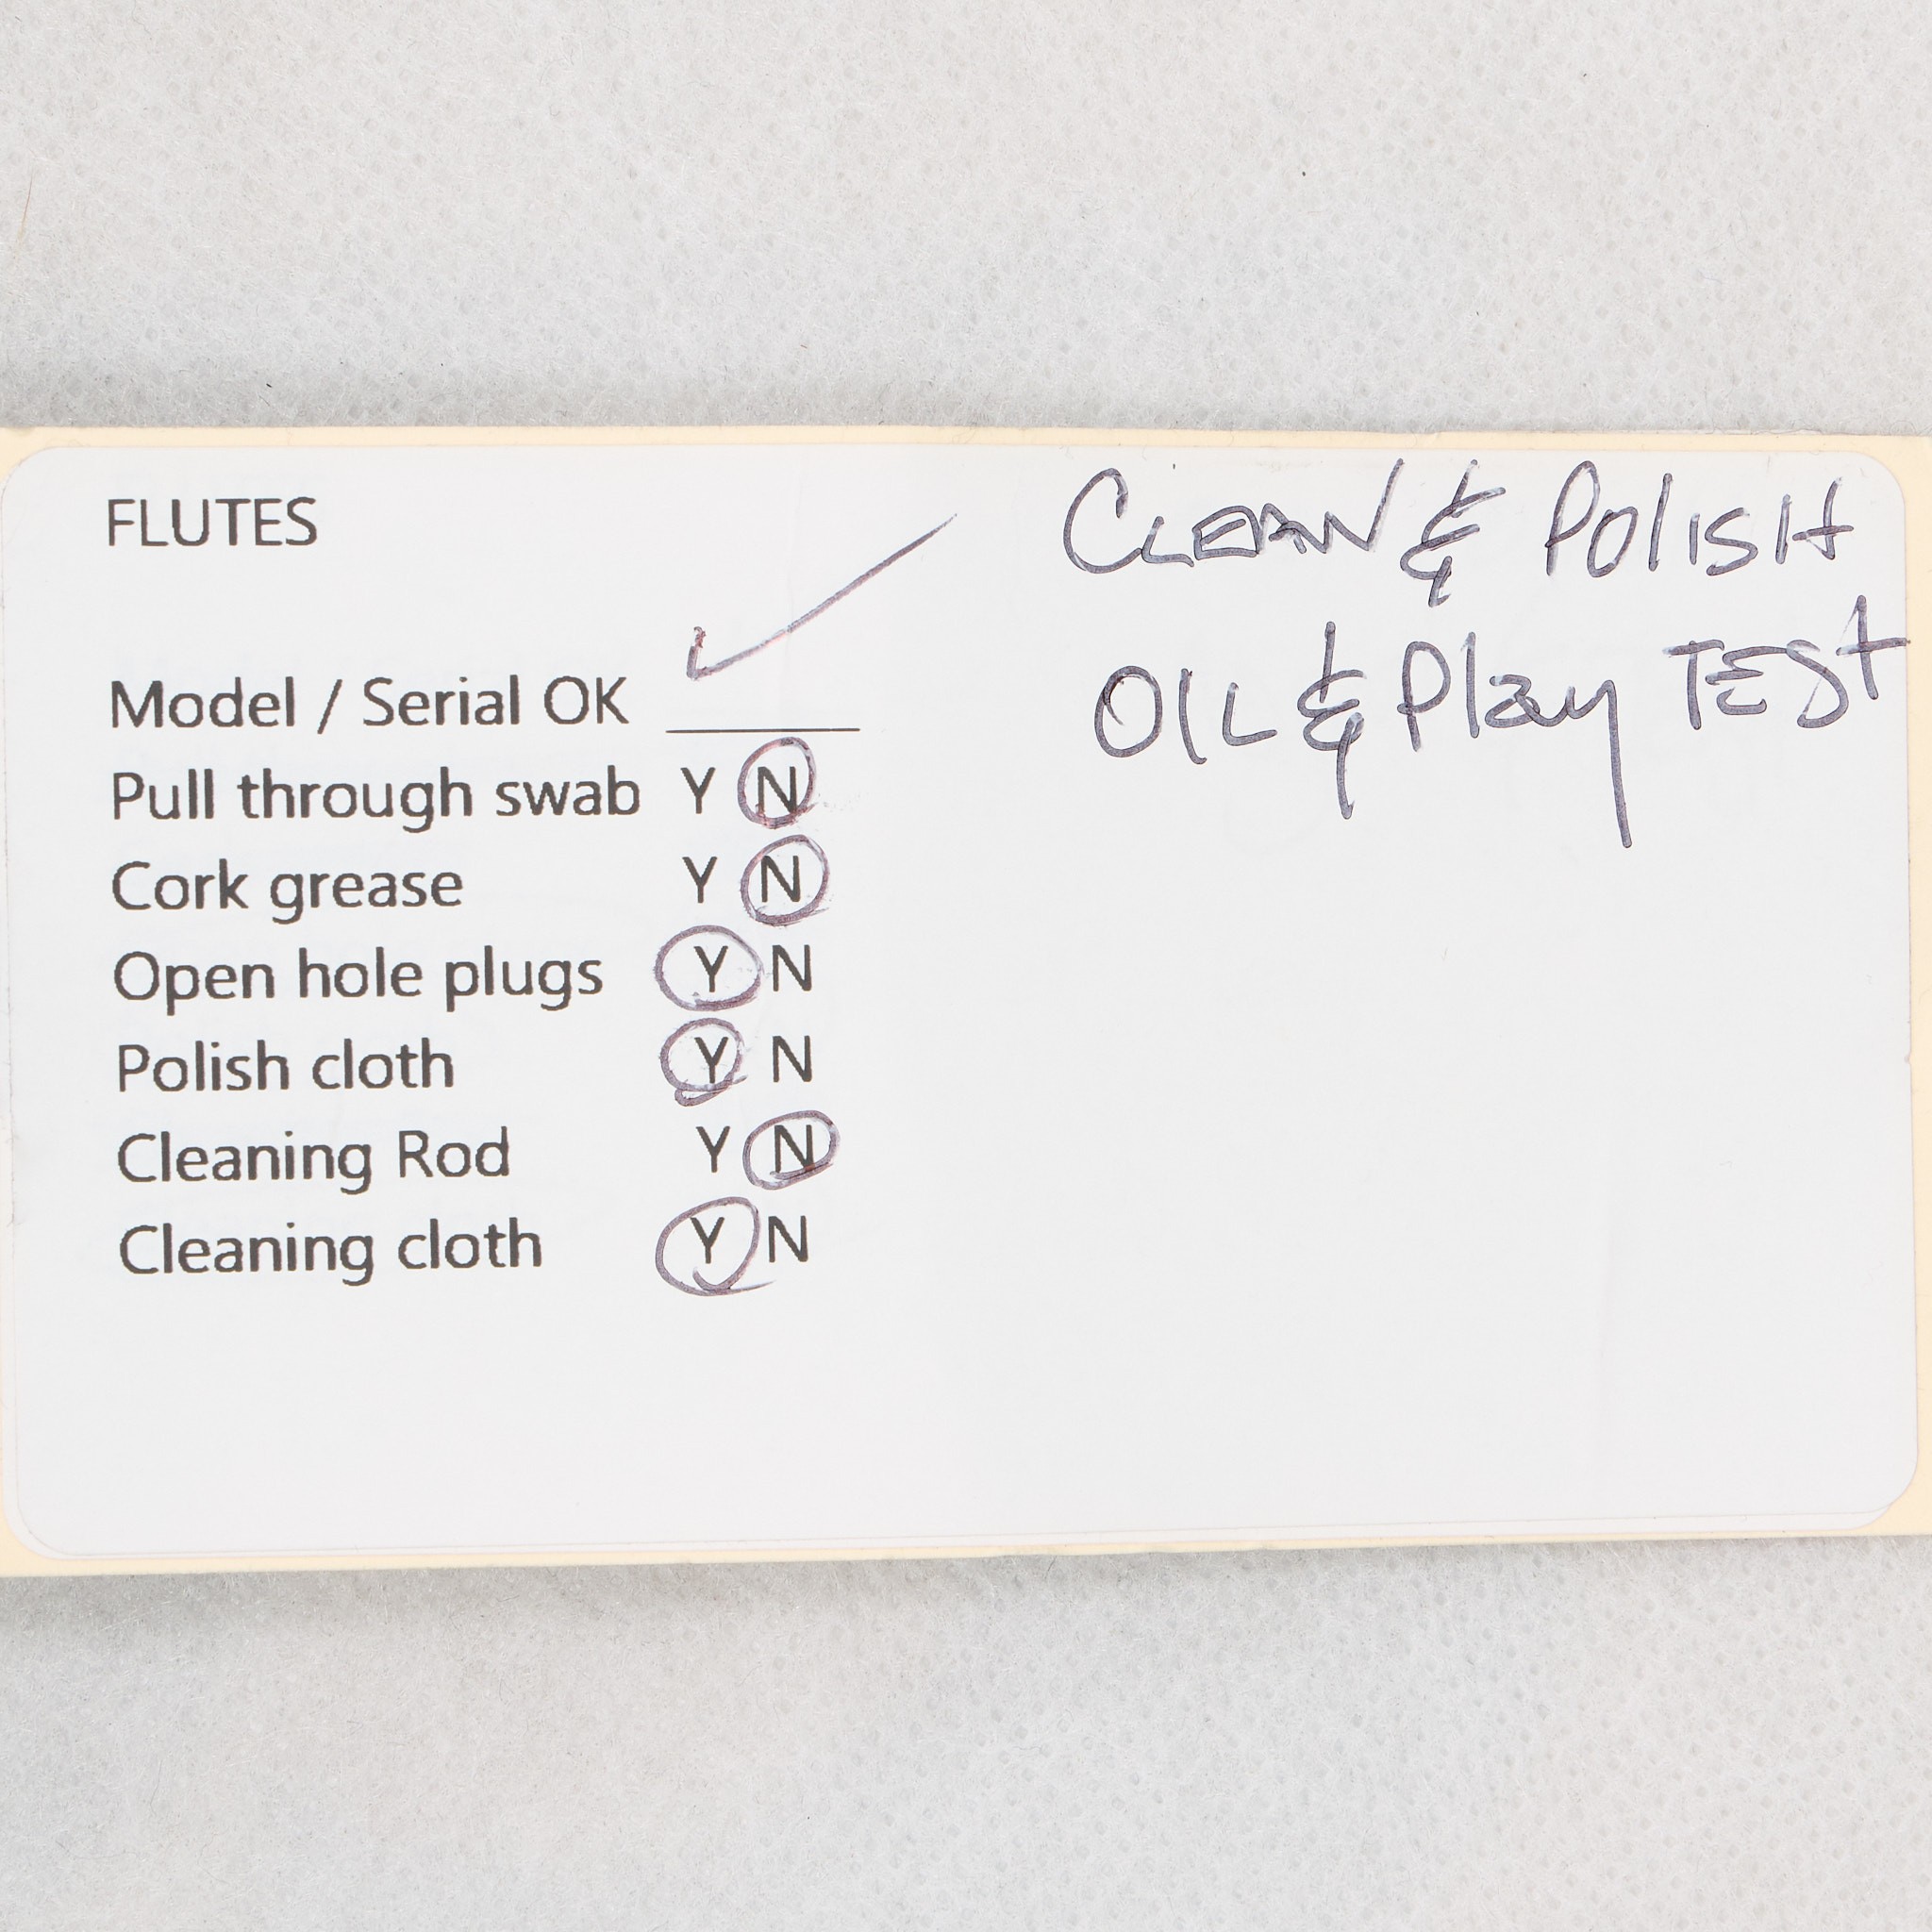 FLUTES
Model / Serial OK ✓
Pull through swab Y N
Cork grease Y N
Open hole plugs Y N
Polish cloth Y N
Cleaning Rod Y N
Cleaning cloth Y N
CLEAN & POlISH
OIL & Play TEST